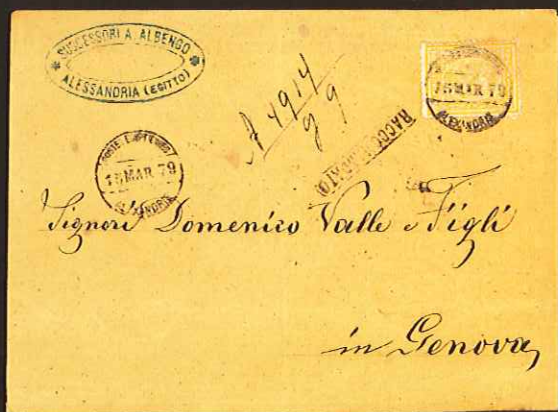 SUCCESSORI A. ALBENGO
ALESSANDRIA (EGITTO)
15 MAR 79
ALEXANDRIE
A 4914
99
RACCOMANDATO
POSTE EGIZIANE
15 MAR 79
ALEXANDRIE
Signori Domenico Valle e Figli
in Genova